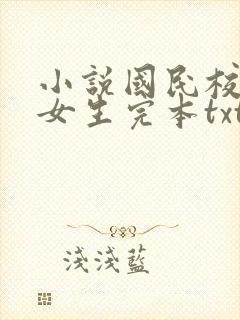 小說國民校
女生完本txt
淺淺藍